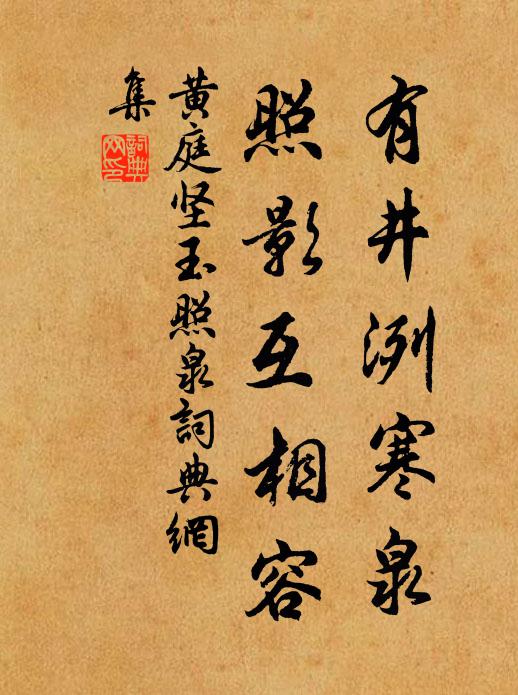 有井洌寒泉
照影互相容
黄庭坚玉照泉詞典網
集
詞典網印